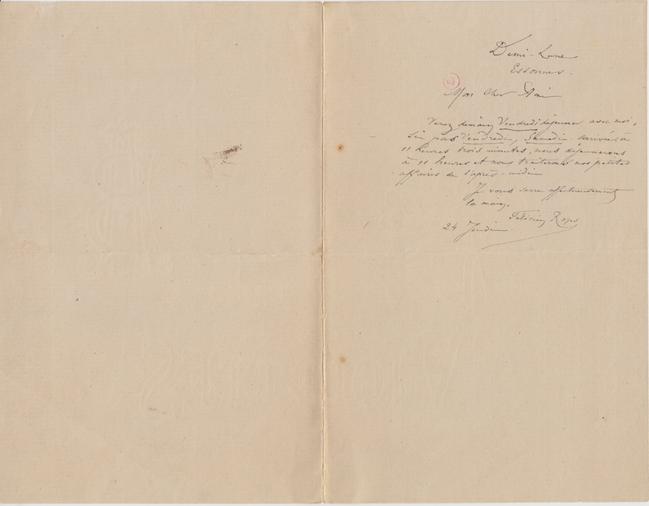 Demi-Lune
Essonnes.
Mon Cher Ami
Venez demain Vendredi déjeuner avec moi,
Sin pas Vendredi, Samedi arrivée à
11 heures trois minutes, nous déjeunerons
à 11 heures et nous traiterons nos petites
affaires de l'après-midi
Je vous serre affectueusement
la main.
Félicien Rops
24 Jeudi